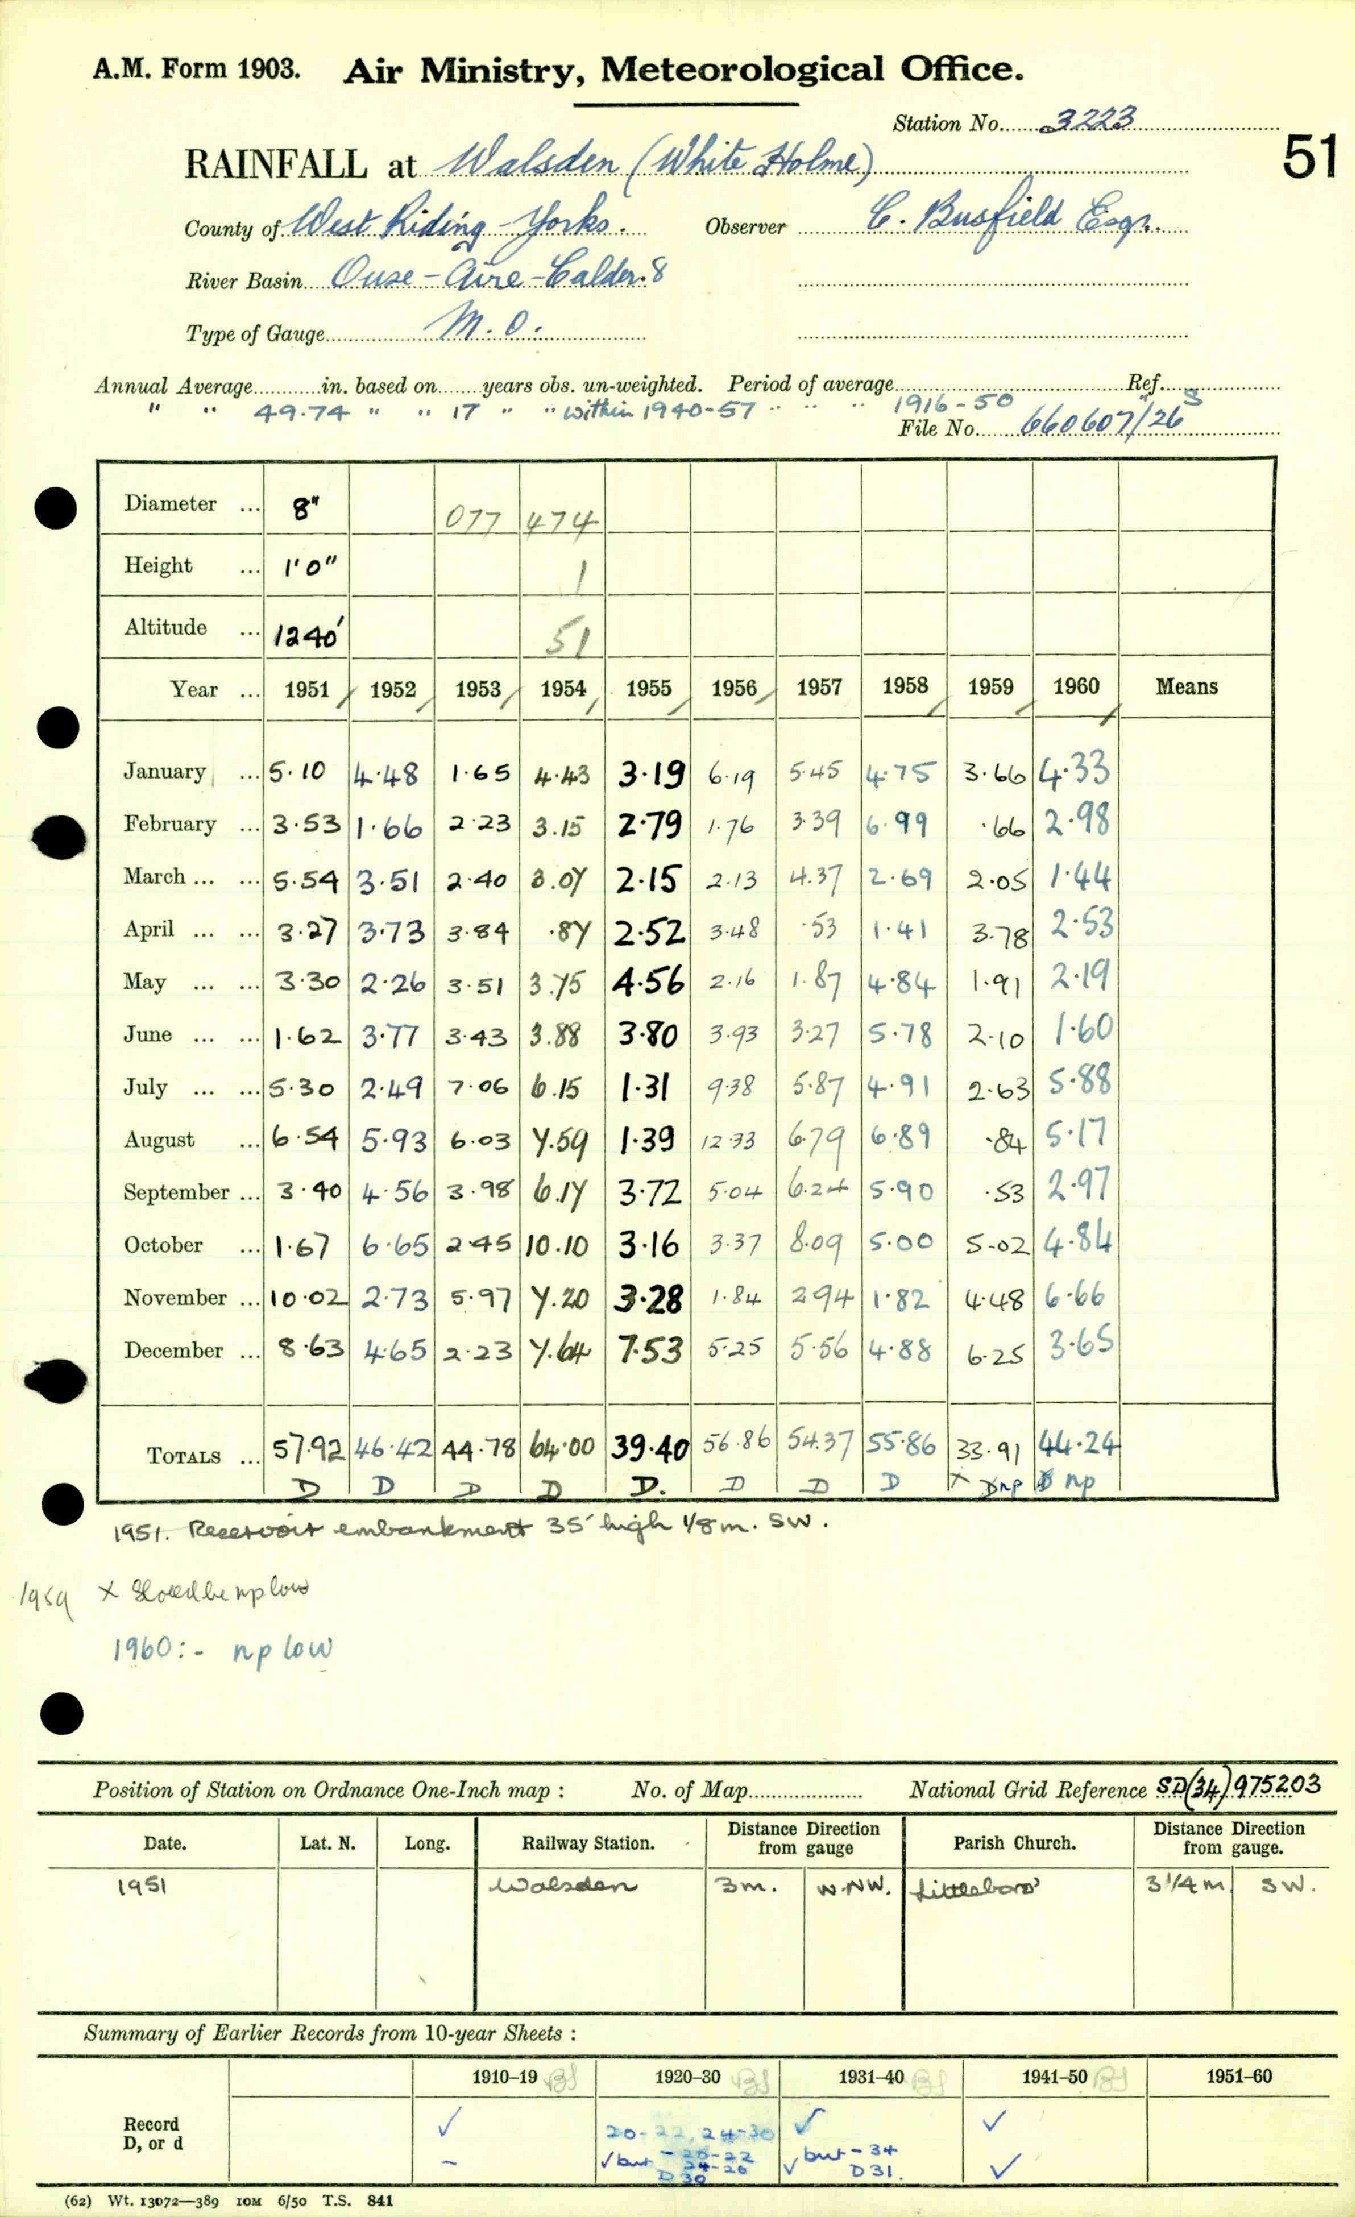 A.M. Form 1903. Air Ministry, Meteorological Office.
Station No. 3223
51
RAINFALL at Walsden (White Holme)
County of West Riding - Yorks. Observer C. Busfield Esqr.
River Basin Ouse - Aire - Calder. 8
Type of Gauge M. O.
Annual Average in. based on years obs. un-weighted. Period of average Ref. S
" " 49.74 " " 17 " " within 1940-57 " " " 1916-50
File No. 660607/26
Diameter ... 8" 077 474
Height ... 1'0" 1
Altitude ... 1240' 51
Year ... 1951 1952 1953 1954 1955 1956 1957 1958 1959 1960 Means
January ... 5.10 4.48 1.65 4.43 3.19 6.19 5.45 4.75 3.66 4.33
February ... 3.53 1.66 2.23 3.15 2.79 1.76 3.39 6.99 .66 2.98
March ... ... 5.54 3.51 2.40 3.07 2.15 2.13 4.37 2.69 2.05 1.44
April ... ... 3.27 3.73 3.84 .87 2.52 3.48 .53 1.41 3.78 2.53
May ... ... 3.30 2.26 3.51 3.75 4.56 2.16 1.87 4.84 1.91 2.19
June ... ... 1.62 3.77 3.43 3.88 3.80 3.93 3.27 5.78 2.10 1.60
July ... ... 5.30 2.49 7.06 6.15 1.31 9.38 5.87 4.91 2.63 5.88
August ... 6.54 5.93 6.03 7.59 1.39 12.33 6.79 6.89 .84 5.17
September ... 3.40 4.56 3.98 6.17 3.72 5.04 6.24 5.90 .53 2.97
October ... 1.67 6.65 2.45 10.10 3.16 3.37 8.09 5.00 5.02 4.84
November ... 10.02 2.73 5.97 7.20 3.28 1.84 2.94 1.82 4.48 6.66
December ... 8.63 4.65 2.23 7.64 7.53 5.25 5.56 4.88 6.25 3.65
TOTALS ... 57.92 46.42 44.78 64.00 39.40 56.86 54.37 55.86 33.91 44.24
D D D D D. D D D X D np D np
1951. Reservoir embankment 35' high 1/8 m. SW.
1959 X Should be np low
1960:- np low
Position of Station on Ordnance One-Inch map : No. of Map National Grid Reference SD(34)975203
Date. Lat. N. Long. Railway Station. Distance from Direction gauge Parish Church. Distance from Direction gauge.
1951 Walsden 3m. W.NW. Littleboro' 3 1/4 m SW.
Summary of Earlier Records from 10-year Sheets :
1910–19 1920–30 1931–40 1941–50 1951–60
Record ✓ 20-22, 24-30 ✓ ✓
D, or d – ✓ but - 20-22 24-26 D30 ✓ but - 34 D31. ✓
(62) Wt. 13072—389 10M 6/50 T.S. 841